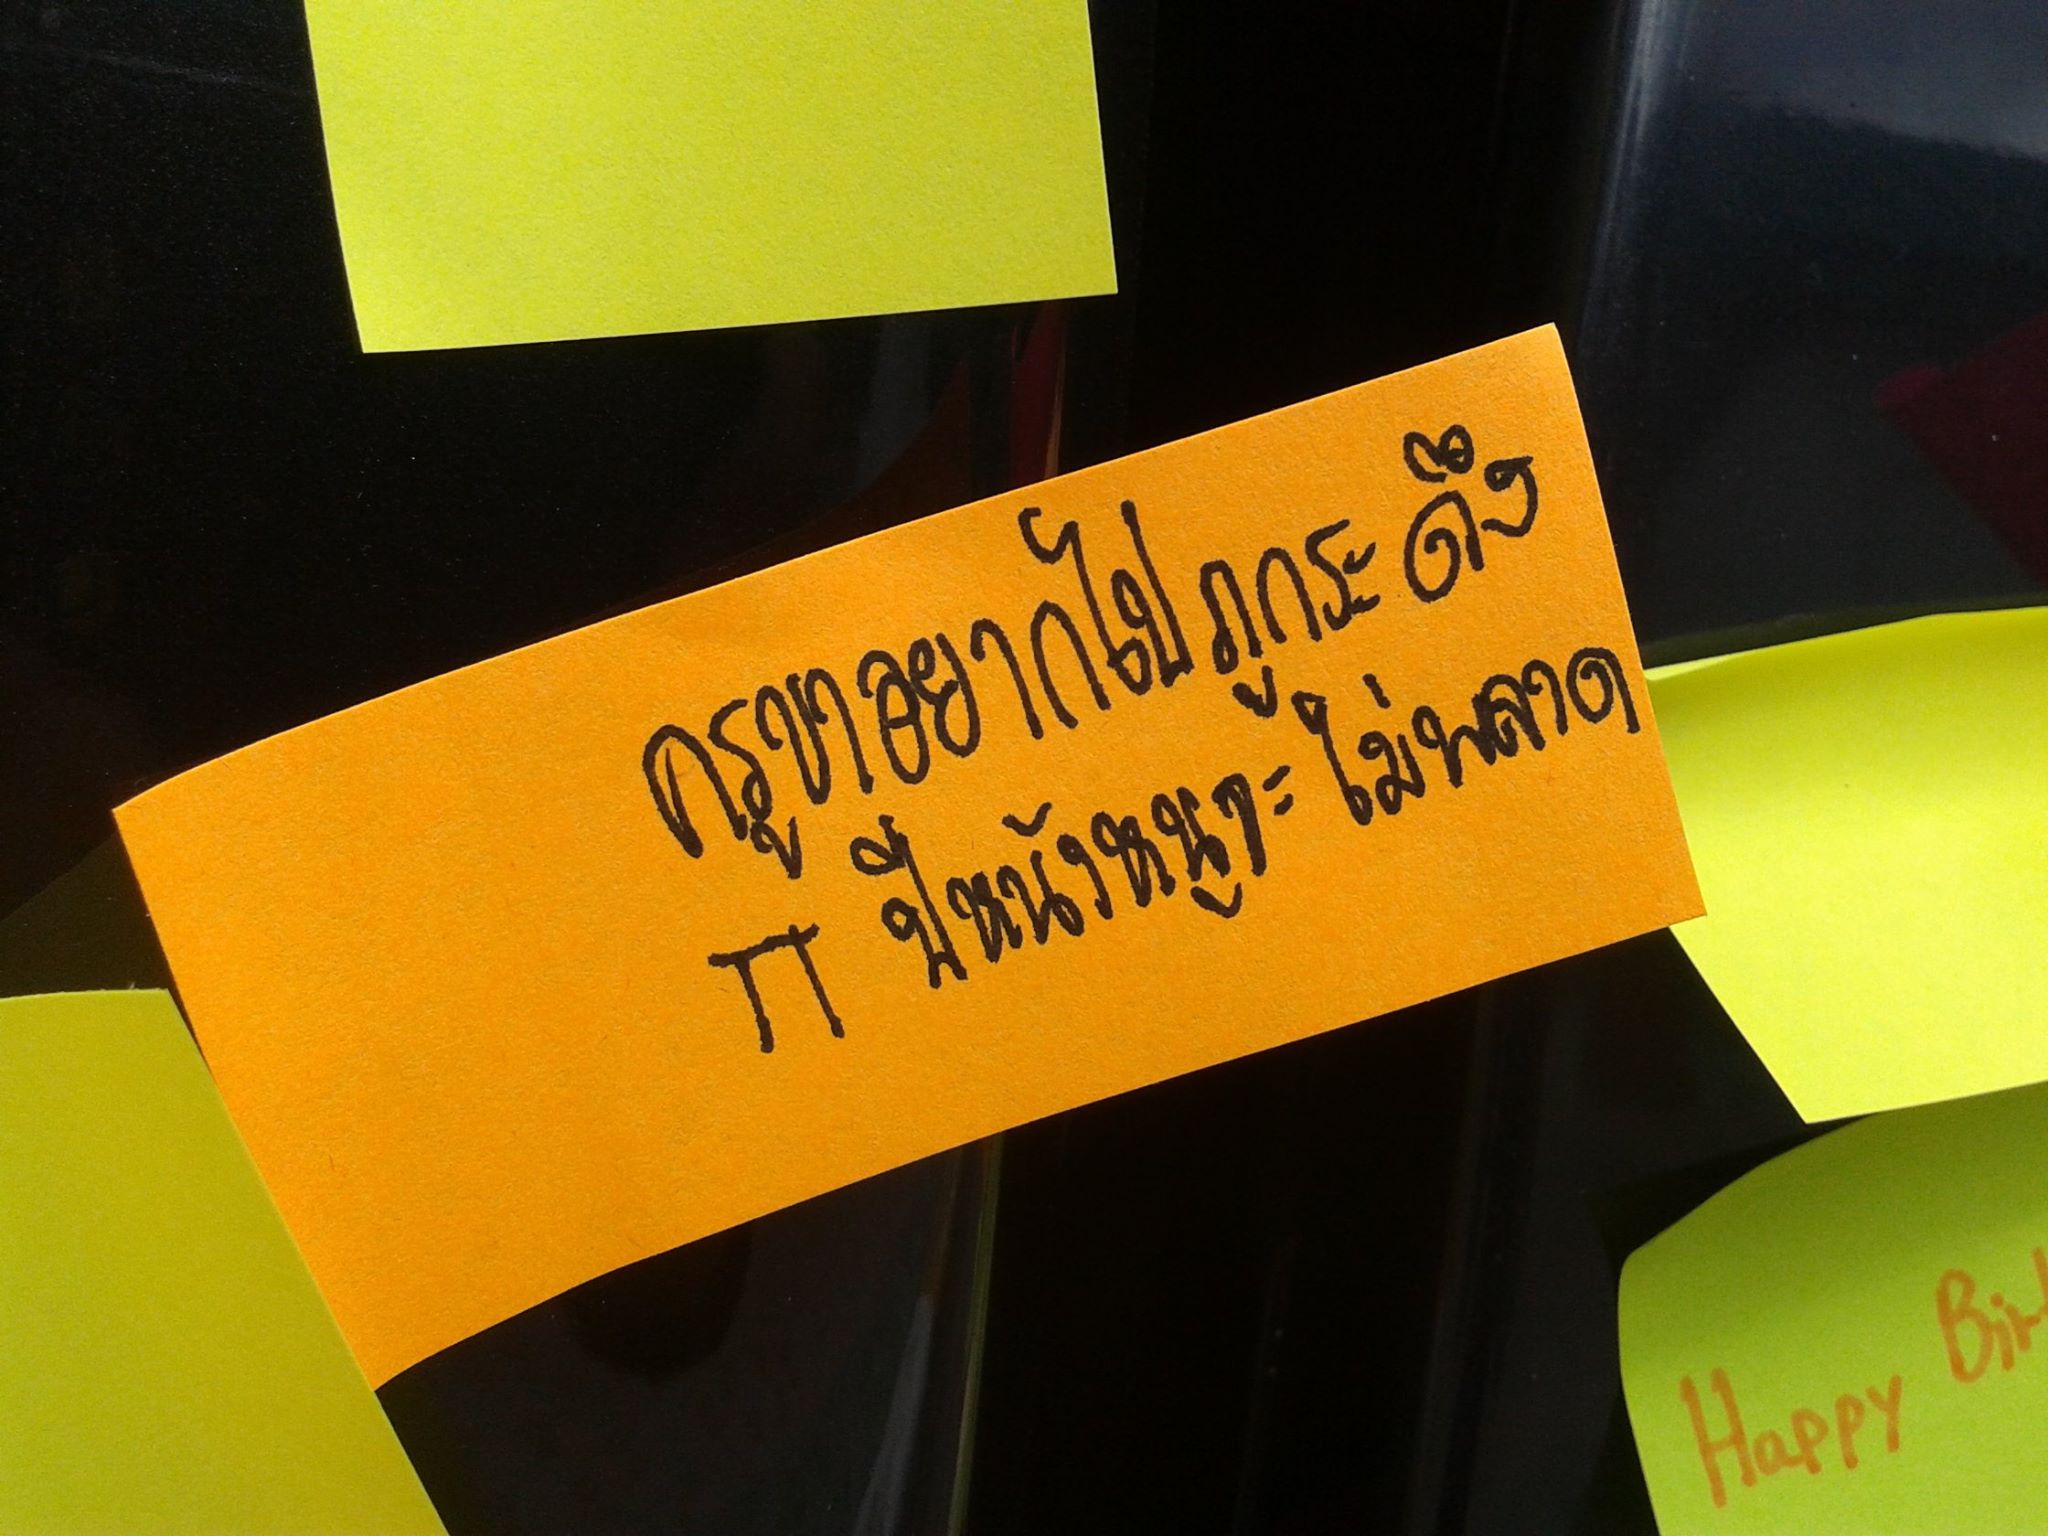 ครูขาอยากไปภูกระดึง
TT ปีหน้าหนูจะไม่พลาด
Happy Birt